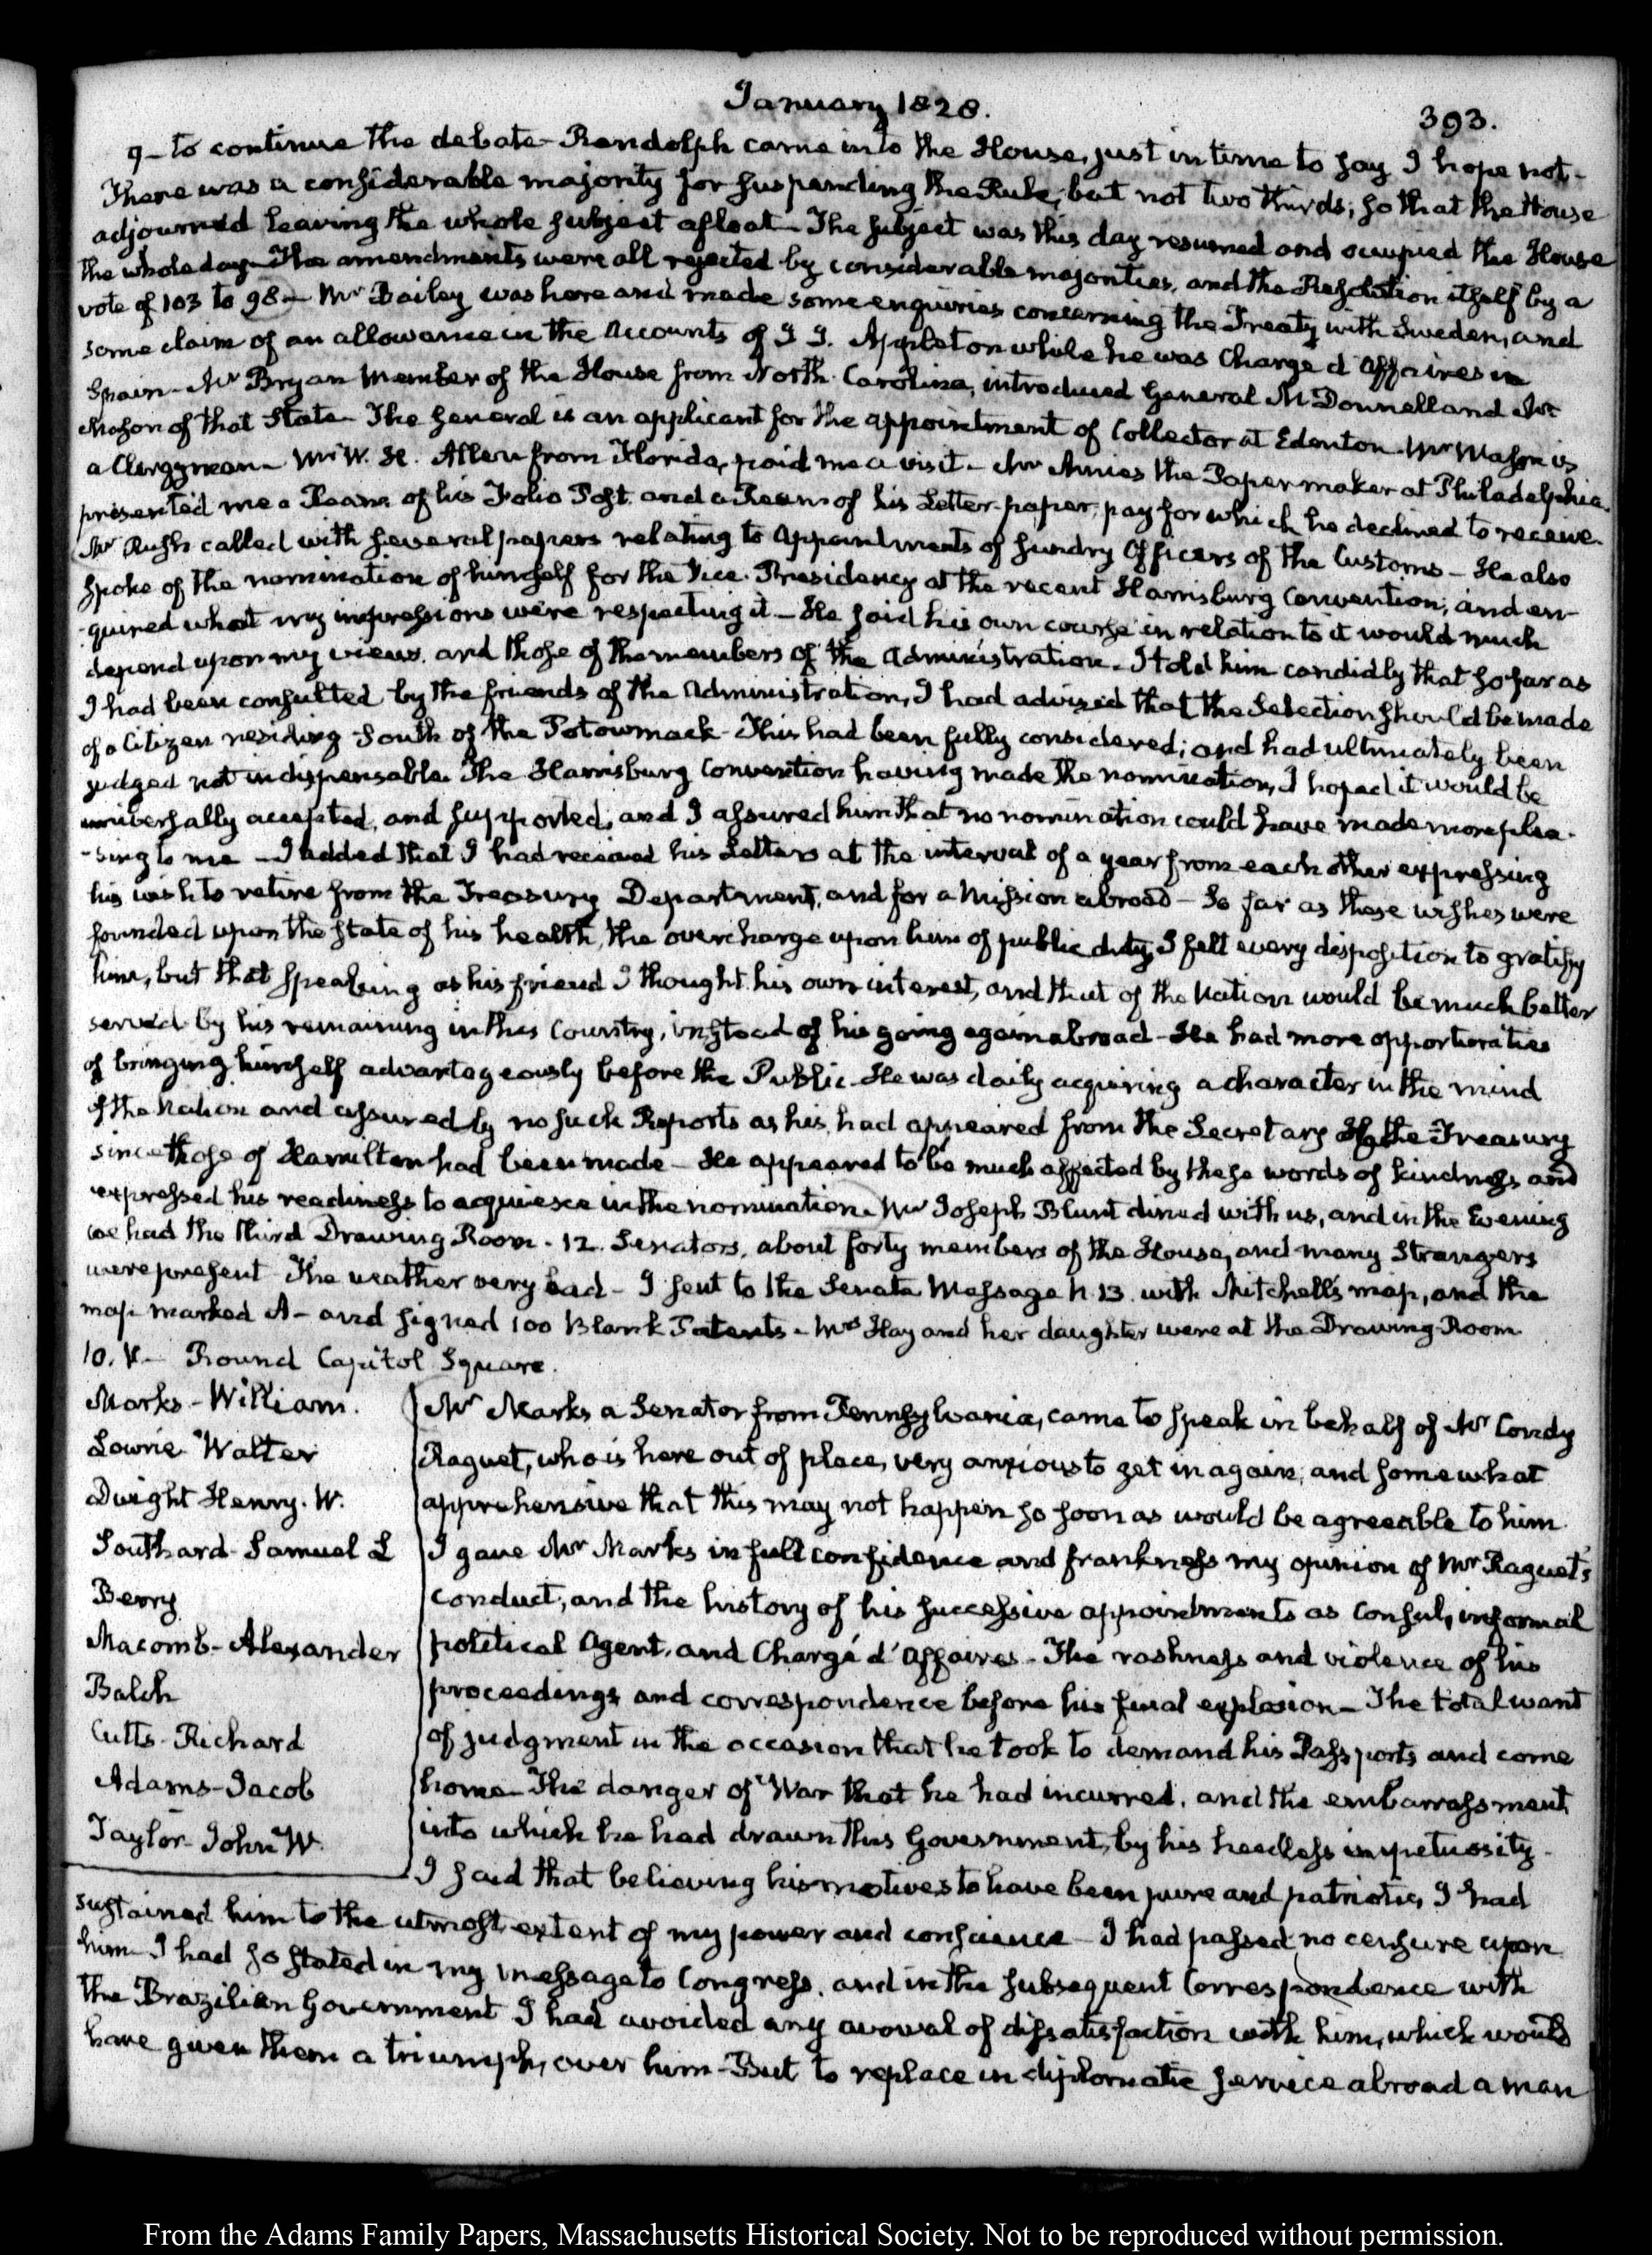 January 1828.
393.
9 – to continue the debate – Randolph came into the House, just in time to say I hope not –
There was a considerable majority for suspending the Rule; but not two thirds; so that the House
adjourned leaving the whole subject afloat – The subject was this day resumed and occupied the House
the whole day – The amendments were all rejected by considerable majorities, and the Resolution itself by a
vote of 103 to 98 – Mr Bailey was here and made some enquiries concerning the Treaty with Sweden, and
some claim of an allowance in the Accounts of J J. Appleton while he was Charge d'Affaires in
Spain – Mr Bryan Member of the House from North Carolina, introduced General McDonnell and Mr
Mason of that State – The General is an applicant for the appointment of Collector at Edenton – Mr Mason is
a Clergyman – Mr W. H. Allen from Florida, paid me a visit – Mr Amies the Paper maker at Philadelphia
presented me a Ream of his Folio Post and a Ream of his Letter-paper, pay for which he declined to receive.
Mr Rush called with several papers relating to Appointments of sundry Officers of the Customs – He also
spoke of the nomination of himself for the Vice-Presidency at the recent Harrisburg Convention; and en-
-quired what my impressions were respecting it – He said his own course in relation to it would much
depend upon my views, and those of the members of the Administration – I told him candidly that so far as
I had been consulted by the friends of the Administration, I had advised that the Selection should be made
of a Citizen residing South of the Potowmack – This had been fully considered; and had ultimately been
judged not indispensable. The Harrisburg Convention having made the nomination, I hoped it would be
universally accepted, and supported; and I assured him that no nomination could have made more plea-
-sing to me – I added that I had received his Letters at the interval of a year from each other expressing
his wish to retire from the Treasury Department, and for a Mission abroad – So far as these wishes were
founded upon the state of his health, the overcharge upon him of public duty, I felt every disposition to gratify
him, but that speaking as his friend I thought his own interest, and that of the Nation would be much better
served by his remaining in this Country, instead of his going again abroad – He had more opportunities
of bringing himself advantageously before the Public – He was daily acquiring a character in the mind
of the Nation and assuredly no such Reports as his, had appeared from the Secretary of the Treasury
since those of Hamilton had been made – He appeared to be much affected by these words of kindness and
expressed his readiness to acquiesce in the nomination. Mr Joseph Blunt dined with us, and in the Evening
we had the third Drawing Room – 12. Senators, about forty members of the House, and many Strangers
were present – The weather very bad – I sent to the Senate Message N. 13. with Mitchell's map, and the
map marked A – and signed 100 Blank Patents – Mrs Hay and her daughter were at the Drawing Room
10. V – Round Capitol Square.
Marks – William.
Lowrie Walter
Dwight Henry. W.
Southard – Samuel L
Berry
Macomb – Alexander
Balch
Cutts – Richard
Adams – Jacob
Taylor – John W.
Mr Marks a Senator from Pennsylvania, came to speak in behalf of Mr Condy
Raguet, who is here out of place, very anxious to get in again, and somewhat
apprehensive that this may not happen so soon as would be agreeable to him
I gave Mr Marks in full confidence and frankness my opinion of Mr Raguet's
conduct, and the history of his successive appointments as Consul, informal
political Agent, and Chargé d'Affaires – The rashness and violence of his
proceedings and correspondence before his final explosion – The total want
of judgment in the occasion that he took to demand his Passports and come
home – The danger of War that he had incurred, and the embarrassment
into which he had drawn this Government, by his heedless impetuosity –
I said that believing his motives to have been pure and patriotic, I had
sustained him to the utmost extent of my power and conscience – I had passed no censure upon
him – I had so stated in my message to Congress, and in the subsequent Correspondence with
the Brazilian Government I had avoided any avowal of dissatisfaction with him, which would
have given them a triumph, over him – But to replace in diplomatic service abroad a man
From the Adams Family Papers, Massachusetts Historical Society. Not to be reproduced without permission.